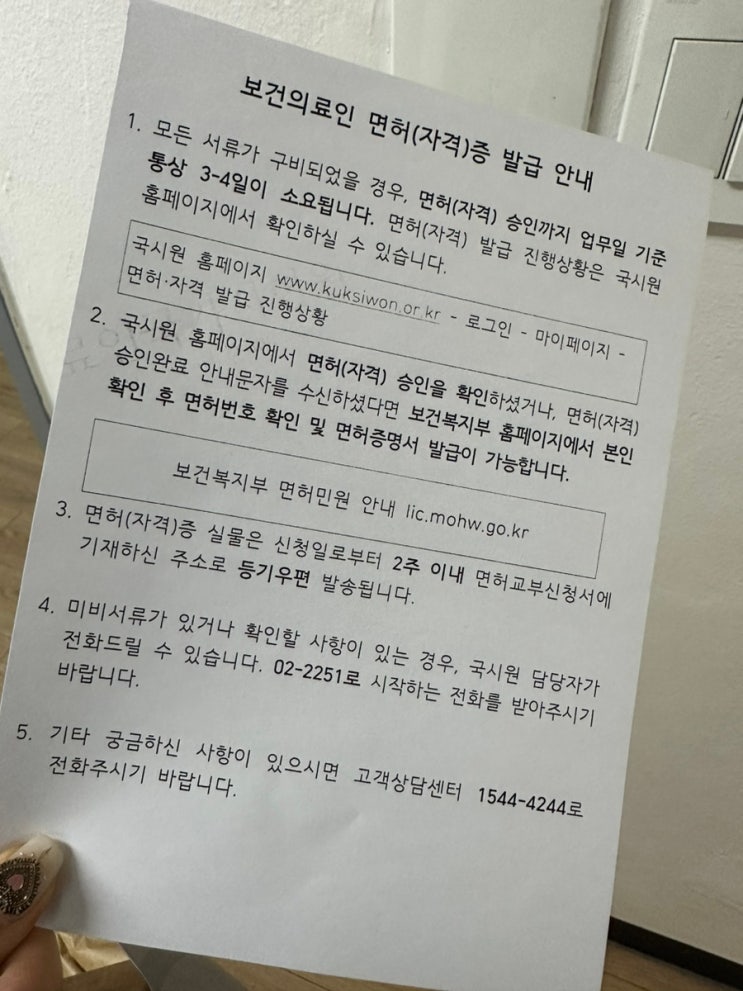 보건의료인 면허(자격)증 발급 안내
1. 모든 서류가 구비되었을 경우, 면허(자격) 승인까지 업무일 기준
통상 3-4일이 소요됩니다. 면허(자격) 발급 진행상황은 국시원
홈페이지에서 확인하실 수 있습니다.
국시원 홈페이지 www.kuksiwon.or.kr - 로그인 - 마이페이지 -
면허·자격 발급 진행상황
2. 국시원 홈페이지에서 면허(자격) 승인을 확인하셨거나, 면허(자격)
승인완료 안내문자를 수신하셨다면 보건복지부 홈페이지에서 본인
확인 후 면허번호 확인 및 면허증명서 발급이 가능합니다.
보건복지부 면허민원 안내 lic.mohw.go.kr
3. 면허(자격)증 실물은 신청일로부터 2주 이내 면허교부신청서에
기재하신 주소로 등기우편 발송됩니다.
4. 미비서류가 있거나 확인할 사항이 있는 경우, 국시원 담당자가
전화드릴 수 있습니다. 02-2251로 시작하는 전화를 받아주시기
바랍니다.
5. 기타 궁금하신 사항이 있으시면 고객상담센터 1544-4244로
전화주시기 바랍니다.